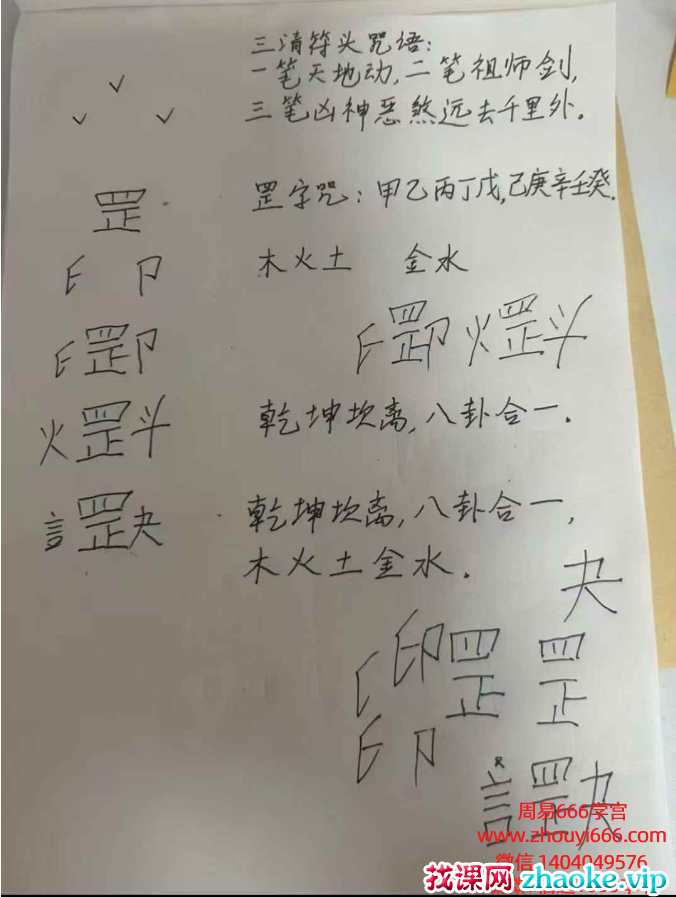 三清符头咒语:
一笔天地动,二笔祖师剑,
三笔凶神恶煞远去千里外。
罡 罡字咒:甲乙丙丁戊,己庚辛壬癸.
木火土 金水
罡 罡
火罡斗 火罡斗 乾坤坎离,八卦合一.
言罡夬 乾坤坎离,八卦合一,
木火土金水.
夬
印 罡 罡
言罡夬
周易666学宫
www.zhouyi666.com
微信 1404049576
找课网 zhaoke.vip